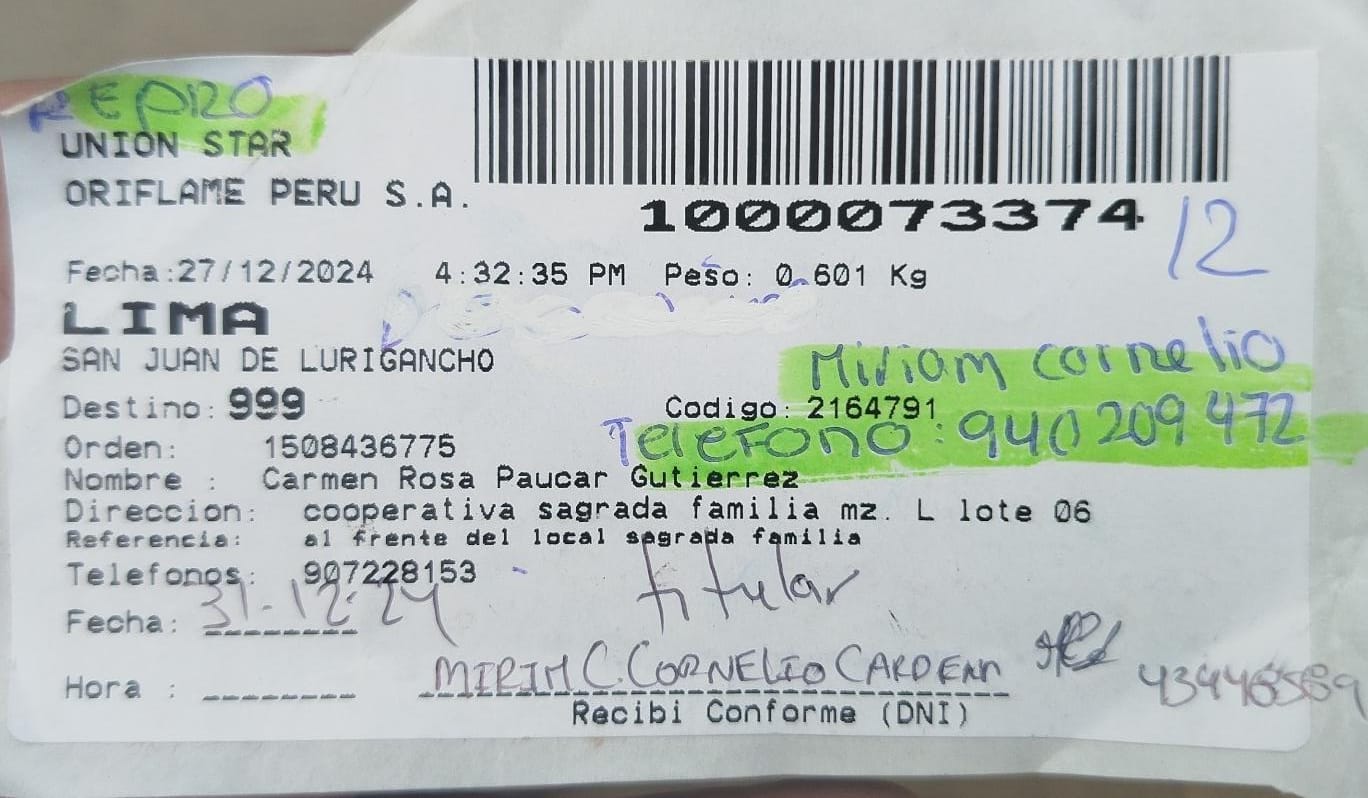 REPRO
UNION STAR
ORIFLAME PERU S.A.
1000073374
12
Fecha:27/12/2024 4:32:35 PM Peso: 0.601 Kg
LIMA
SAN JUAN DE LURIGANCHO
Miriam cornelio
Destino: 999 Codigo: 2164791
Telefono: 940 209 472
Orden: 1508436775
Nombre : Carmen Rosa Paucar Gutierrez
Direccion: cooperativa sagrada familia mz. L lote 06
Referencia: al frente del local sagrada familia
Telefonos: 907228153
titular
Fecha: 31-12-24
MIRIM C. CORNELIO CARDENA
Hora :
Recibi Conforme (DNI)